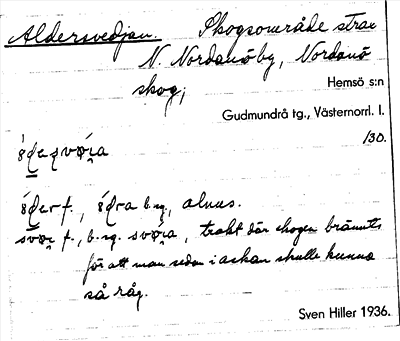 Aldersvedjan. Skogsområde strax
N. Nordanö by, Nordanö
skog;
Hemsö s:n
Gudmundrå tg., Västernorrl. l.
130.
f., b. sg., alnus.
f., b. sg., trakt där skogen bränts
för att man sedan i askan skulle kunna
så råg.
Sven Hiller 1936.